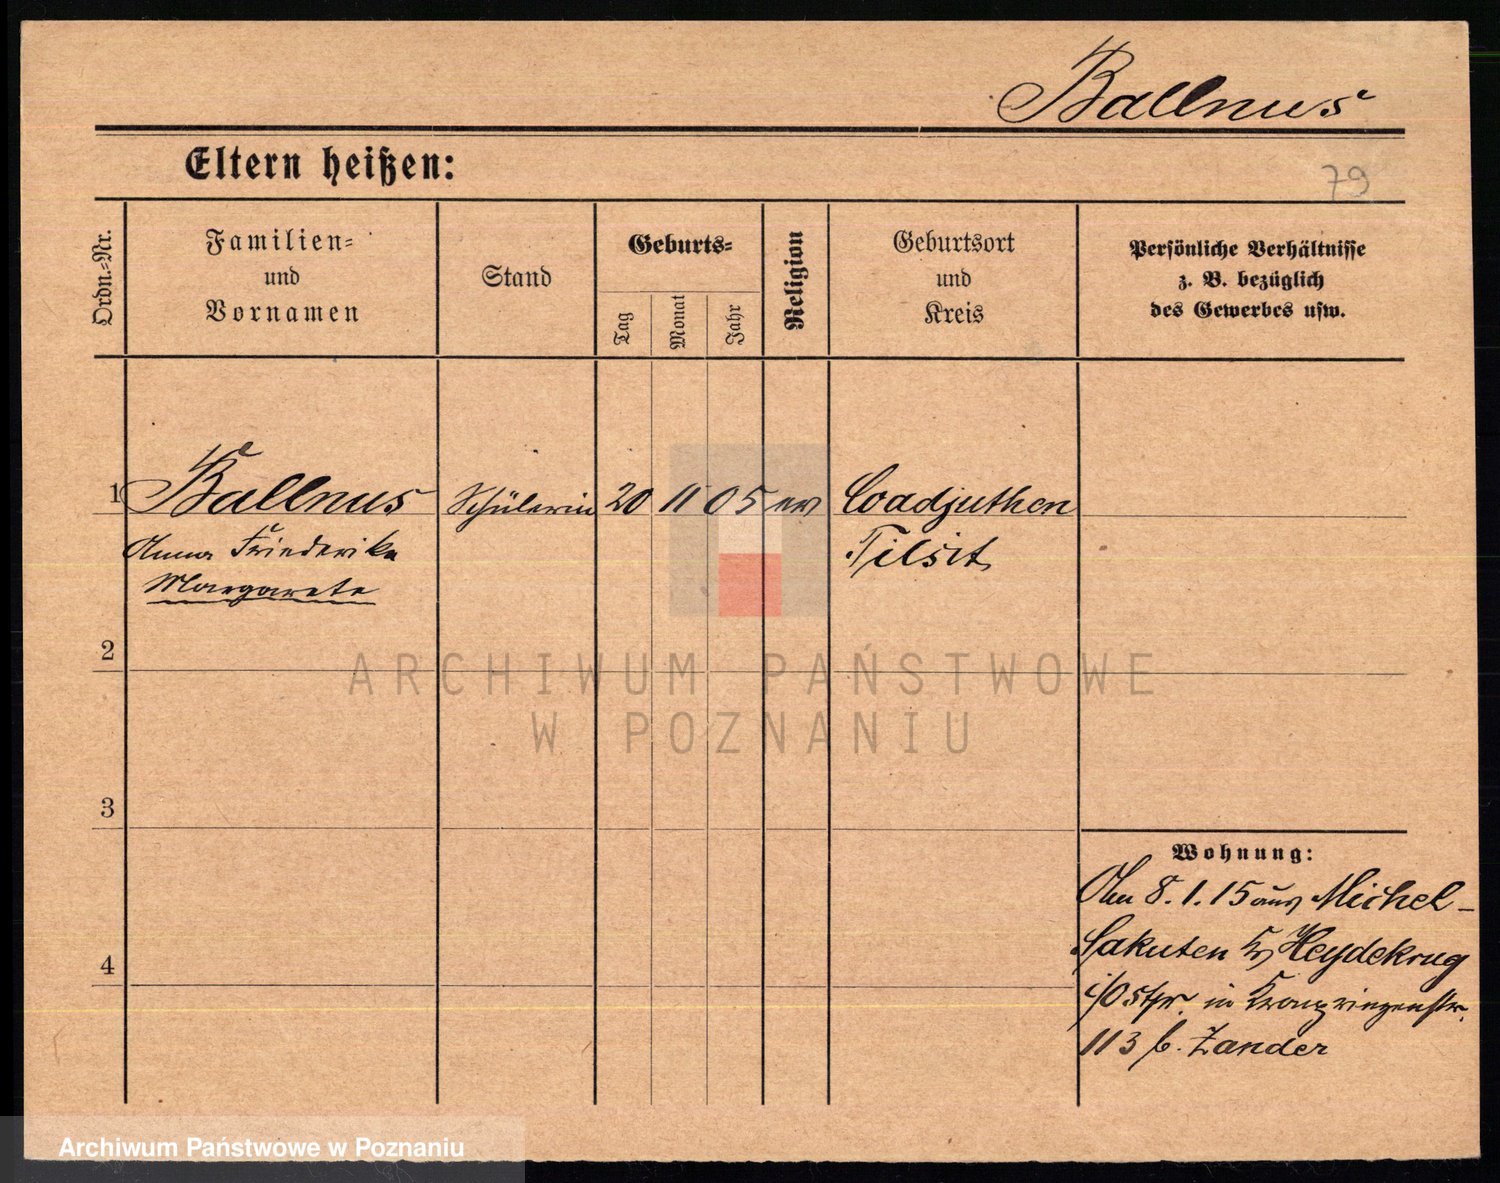 Ballnus
Eltern heißen:
79
Ordn.=Nr.
Familien=
und
Vornamen
Stand
Geburts=
Tag
Monat
Jahr
Religion
Geburtsort
und
Kreis
Persönliche Verhältnisse
z. B. bezüglich
des Gewerbes usw.
1 Ballnus Schülerin 20 11 05 ev Coadjuthen
Anna Friederike Tilsit
Margarete
2
ARCHIWUM PAŃSTWOWE
W POZNANIU
3
Wohnung:
Am 8. 1. 15 aus Michel-
Sakuten Kr Heydekrug
4
i/Ostpr. in Kronprinzenstr.
113 b. Zander
Archiwum Państwowe w Poznaniu